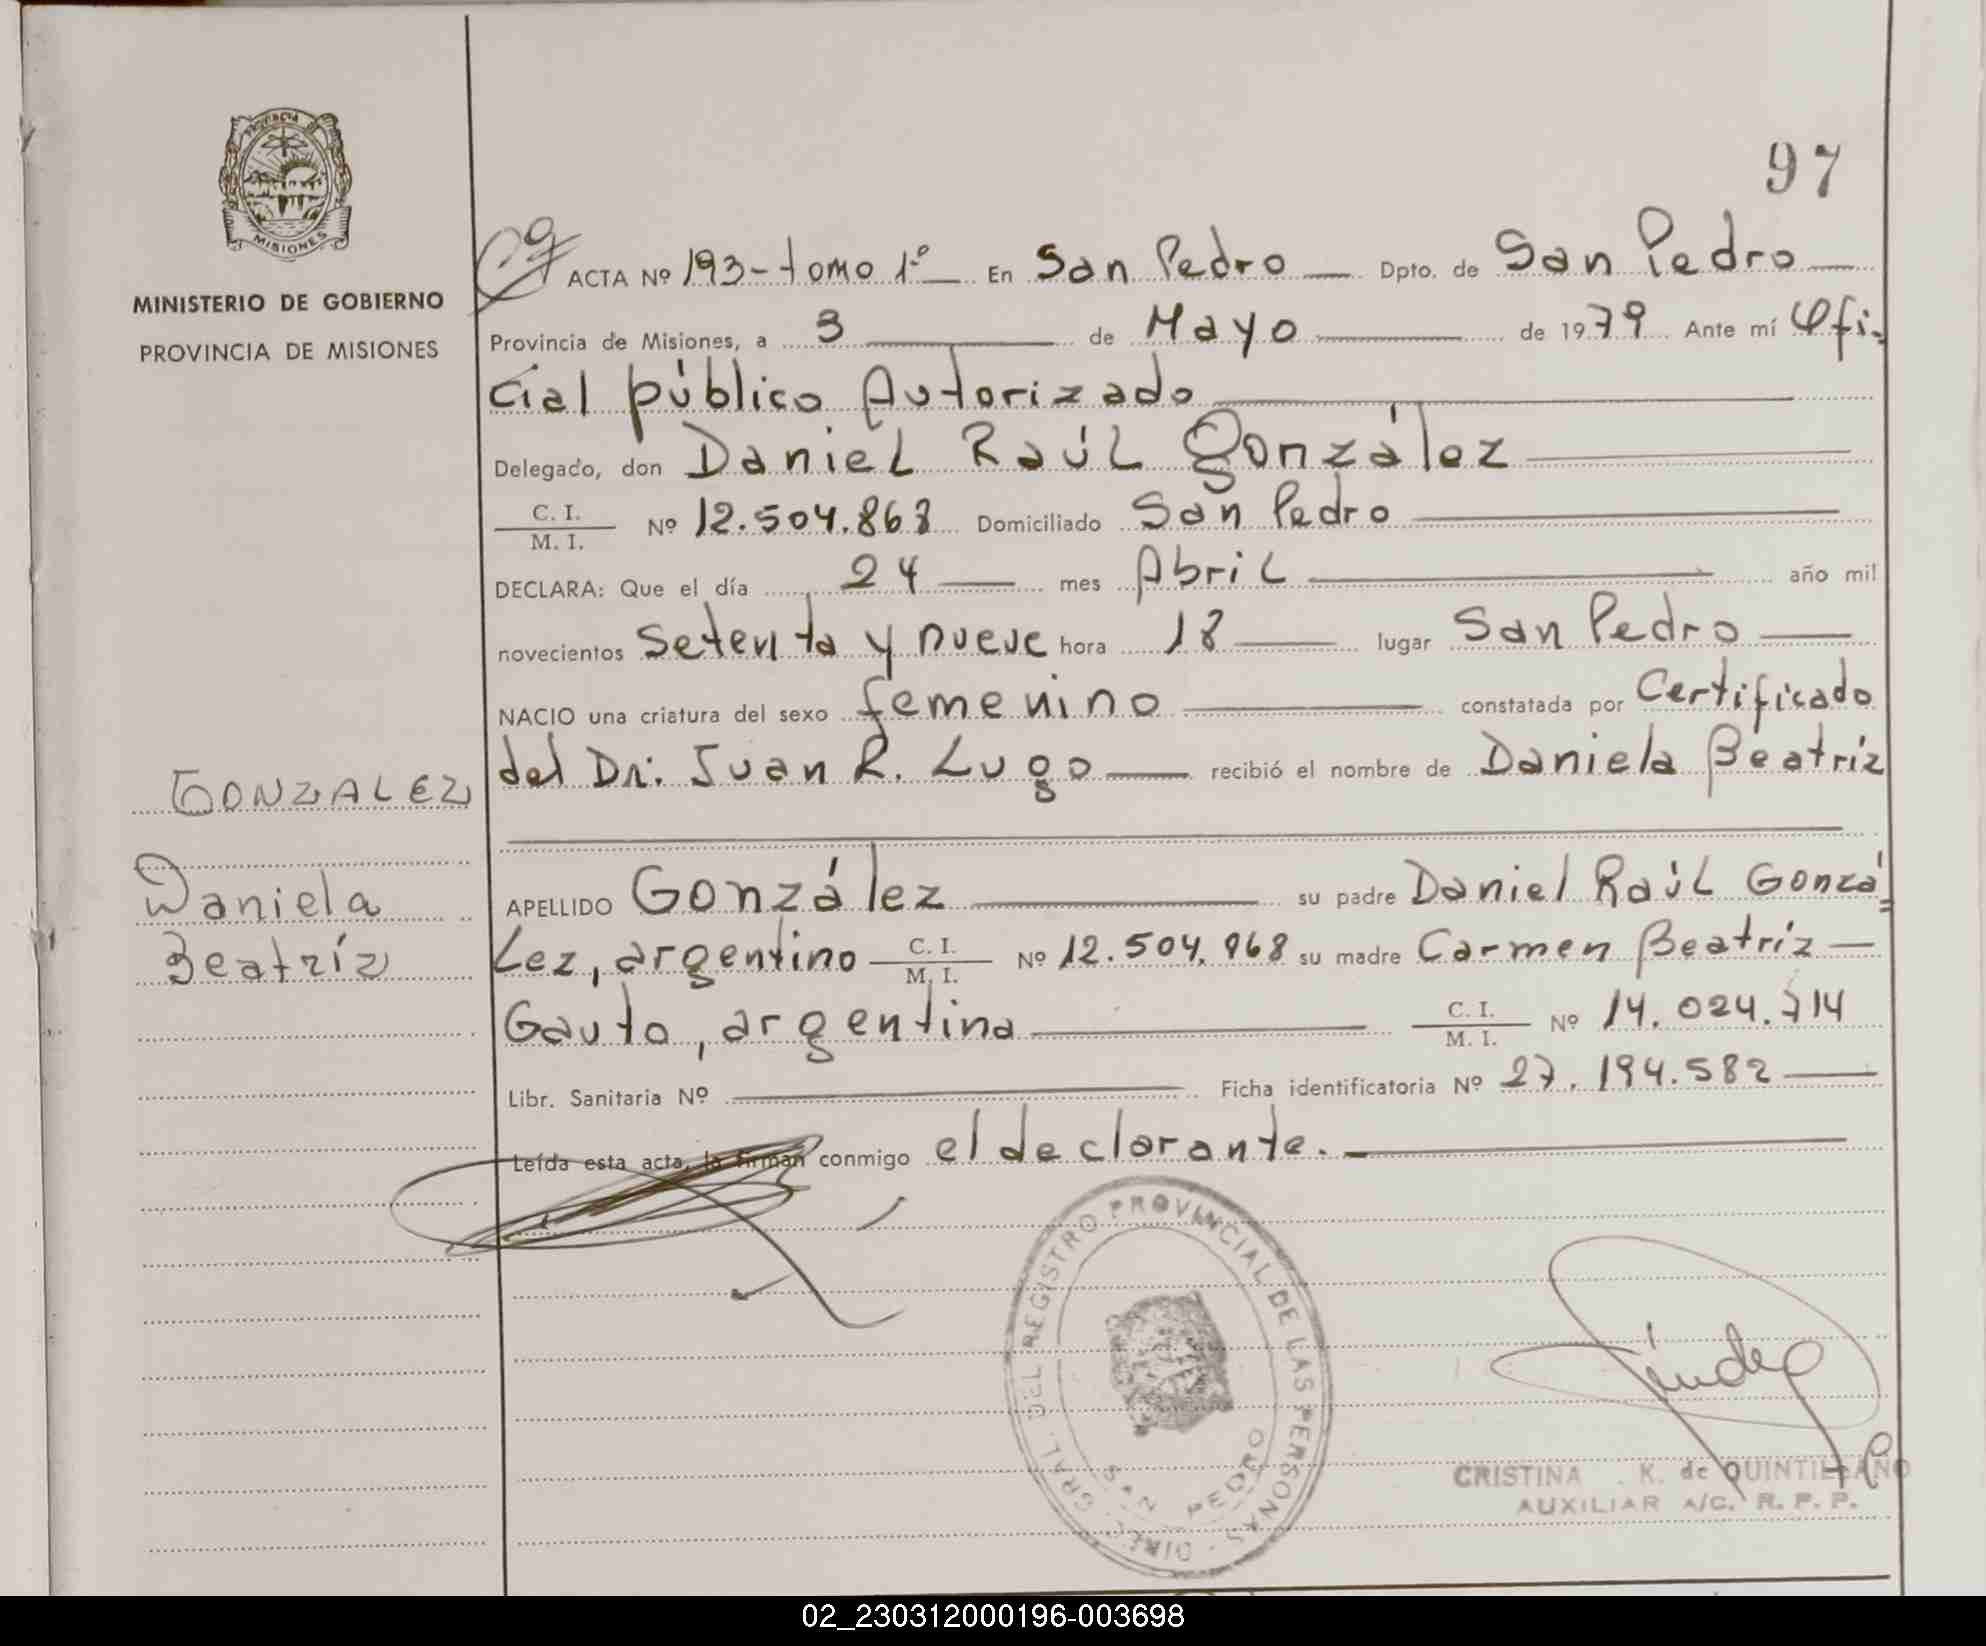 97
PROVINCIA DE
MISIONES
MINISTERIO DE GOBIERNO
PROVINCIA DE MISIONES
ACTA Nº 193-tomo 1º En San Pedro Dpto. de San Pedro
Provincia de Misiones, a 3 de Mayo de 1979 Ante mí Ofi-
cial público Autorizado
Delegado, don Daniel Raúl González
C. I.
M. I. Nº 12.504.868 Domiciliado San Pedro
DECLARA: Que el día 24 mes Abril año mil
novecientos setenta y nueve hora 18 lugar San Pedro
NACIO una criatura del sexo femenino constatada por Certificado
del Dr. Juan R. Lugo recibió el nombre de Daniela Beatríz
GONZALEZ
Daniela
Beatríz
APELLIDO González su padre Daniel Raúl Gonzá=
lez, argentino C. I.
M. I. Nº 12.504.868 su madre Carmen Beatríz
Gauto, argentina C. I.
M. I. Nº 14.024.714
Libr. Sanitaria Nº Ficha identificatoria Nº 27.194.582
Leída esta acta, la firman conmigo el declarante.
DIREC. GRAL. DEL REGISTRO PROVINCIAL DE LAS PERSONAS
SAN PEDRO
CRISTINA K. de QUINTILLANO
AUXILIAR A/C. R. P. P.
02_230312000196-003698